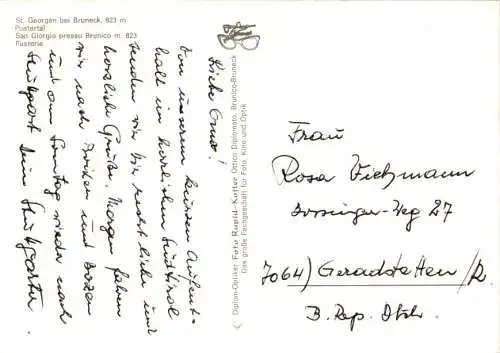 St. Georgen bei Bruneck, 823 m
Pustertal
San Giorgio presso Brunico m. 823
Pusteria
Liebe Oma!
Von unserem kurzen Aufent-
halt im herrlichen Südtirol
senden wir Dir recht liebe und
herzliche Grüße. Morgen fahren
wir nach Brixen und Bozen
und am Sonntag wieder nach
Stuttgart. Deine Stuttgarter
Diplom-Optiker Foto Rapid-Kuffer Ottico Diplomato, Brunico-Bruneck
Das große Fachgeschäft für Foto, Kino und Optik
Frau
Rosa Viehmann
-Weg 27
7064) Geradstetten/R.
B. Rep. Dtschl.